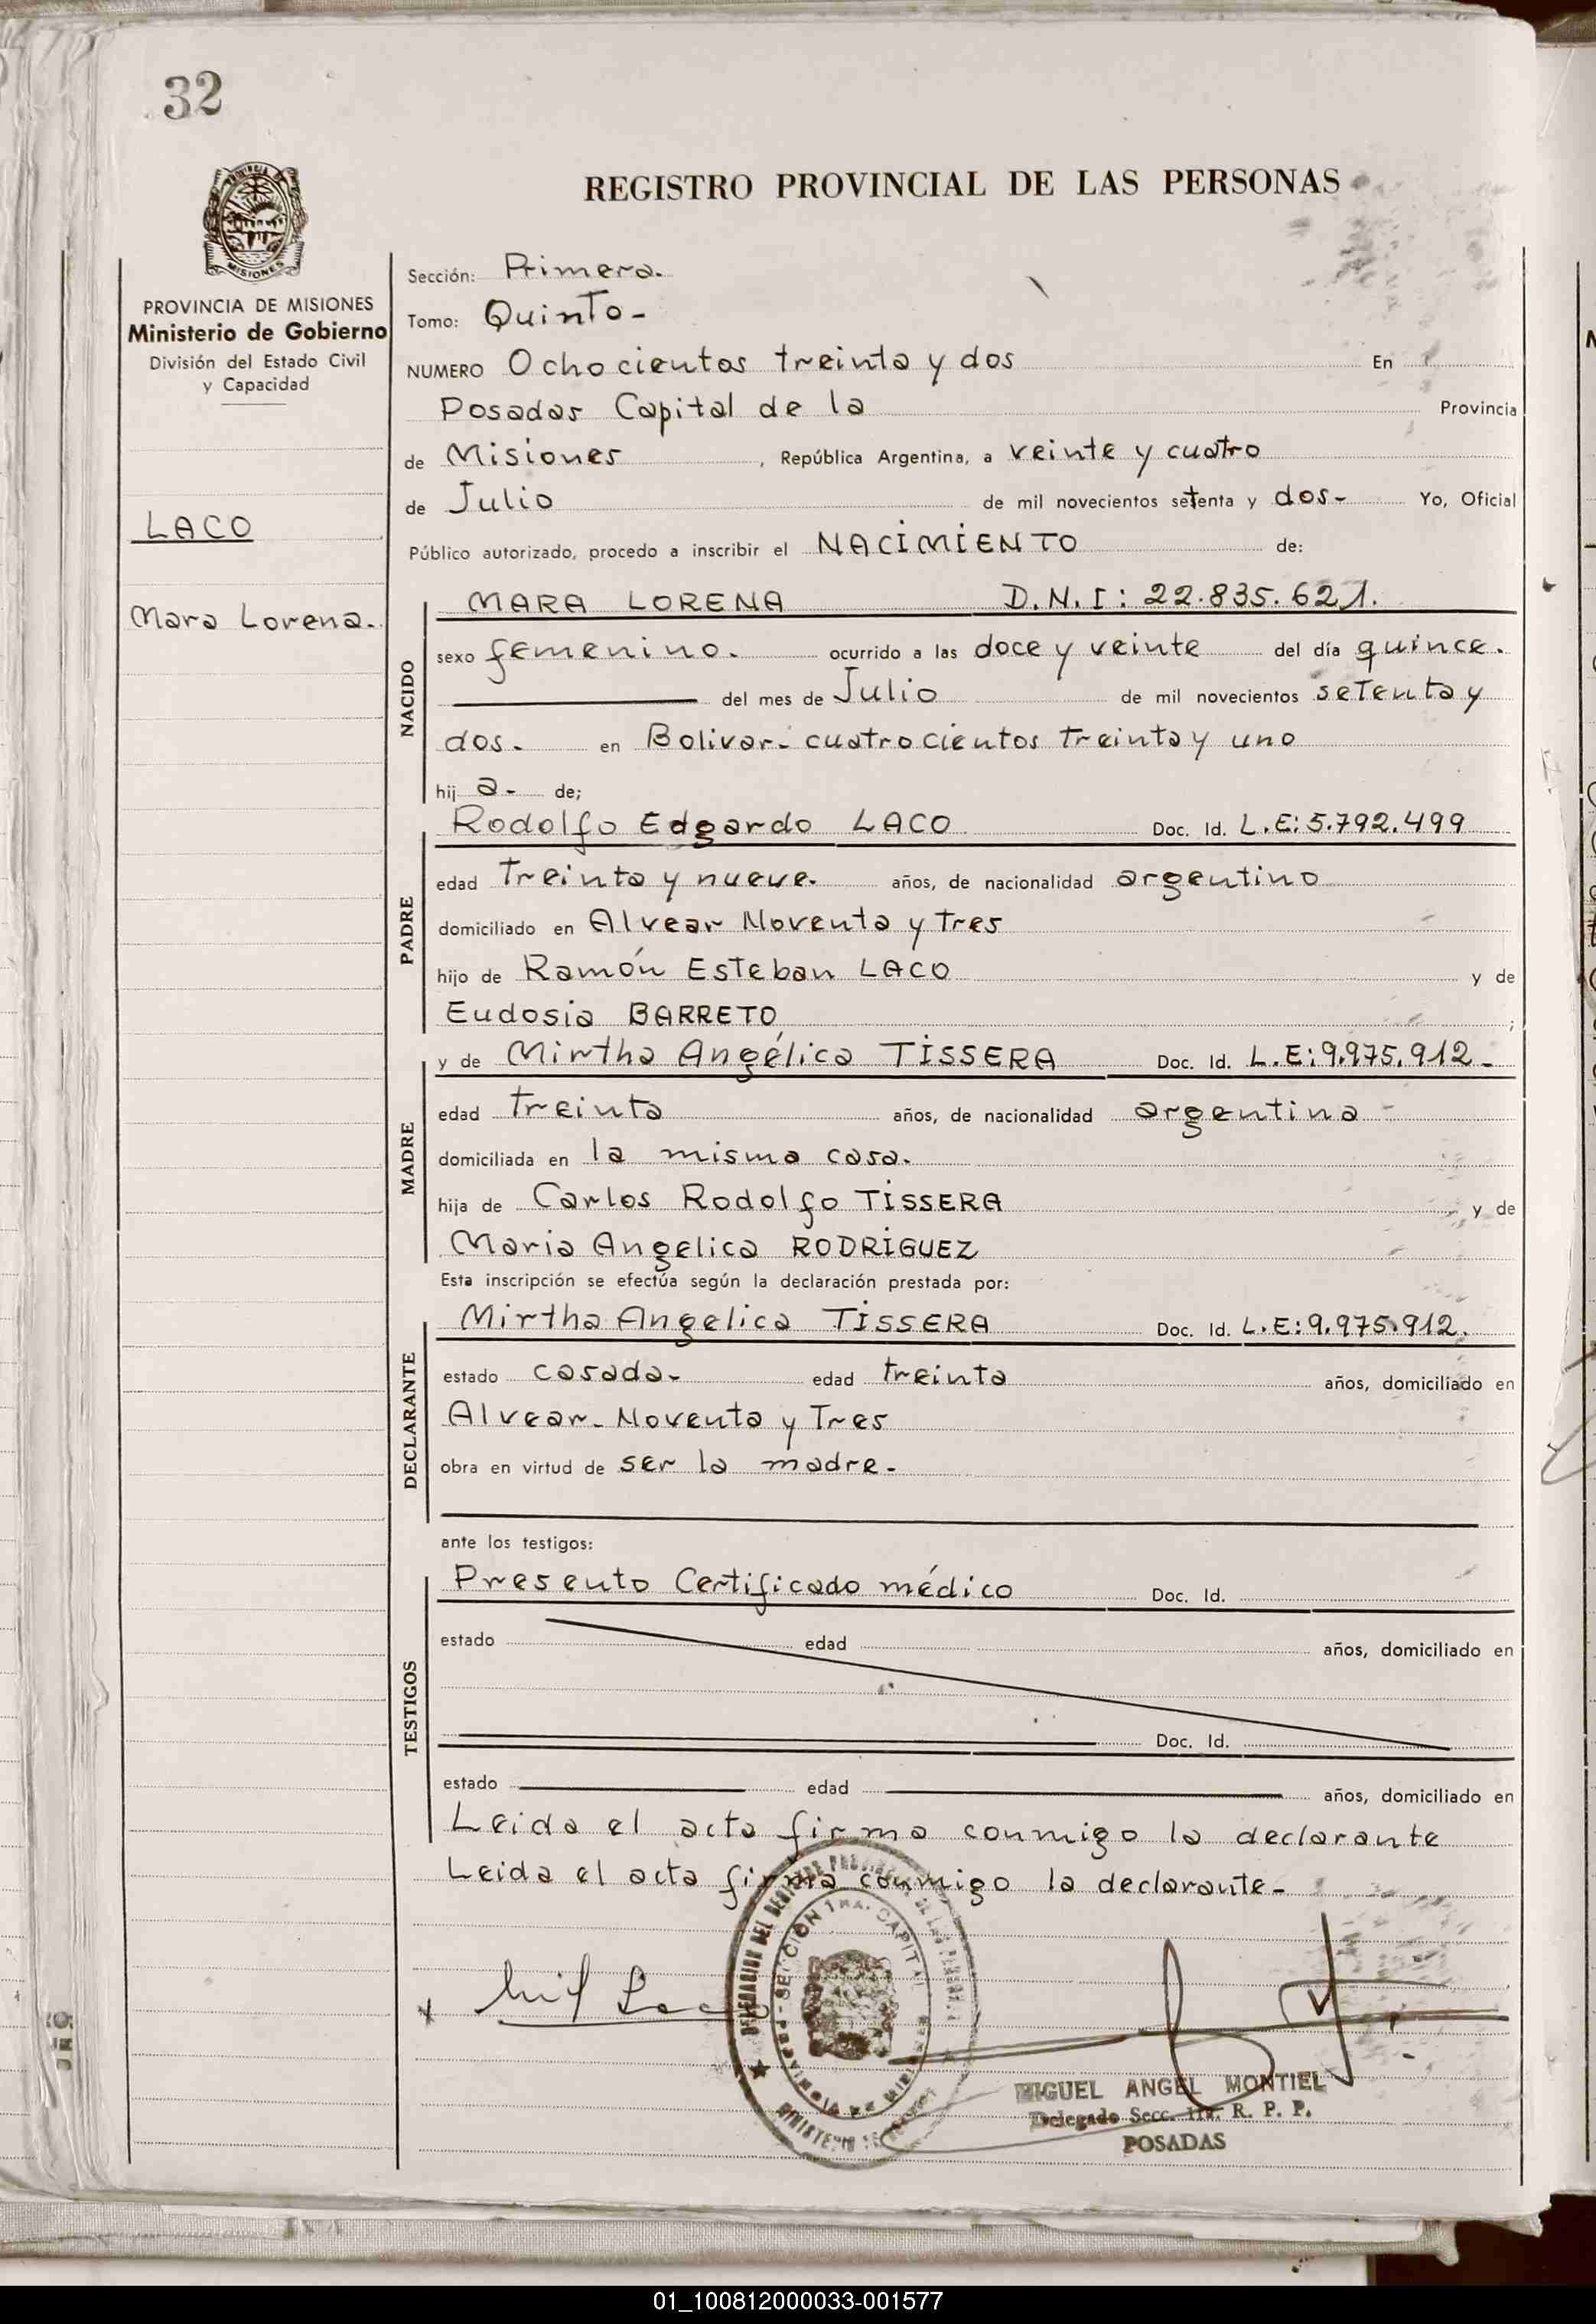 32
REGISTRO PROVINCIAL DE LAS PERSONAS
MISIONES
PROVINCIA DE MISIONES
Ministerio de Gobierno
División del Estado Civil
y Capacidad
LACO
Mara Lorena.
Sección: Primera.
Tomo: Quinto-
NUMERO Ochocientos treinta y dos En
Posadas Capital de la Provincia
de Misiones, República Argentina, a veinte y cuatro
de Julio de mil novecientos setenta y dos- Yo, Oficial
Público autorizado, procedo a inscribir el NACIMIENTO de:
NACIDO
MARA LORENA D.N.I: 22.835.621.
sexo femenino. ocurrido a las doce y veinte del día quince.
del mes de Julio de mil novecientos setenta y
dos. en Bolivar- cuatrocientos treinta y uno
hij a- de;
PADRE
Rodolfo Edgardo LACO Doc. Id. L.E: 5.792.499
edad treinta y nueve. años, de nacionalidad argentino
domiciliado en Alvear Noventa y tres
hijo de Ramón Esteban LACO y de
Eudosia BARRETO ;
MADRE
y de Mirtha Angélica TISSERA Doc. Id. L.E: 9.975.912-
edad treinta años, de nacionalidad argentina-
domiciliada en la misma casa.
hija de Carlos Rodolfo TISSERA y de
Maria Angelica RODRIGUEZ
Esta inscripción se efectúa según la declaración prestada por:
DECLARANTE
Mirtha Angelica TISSERA Doc. Id. L.E: 9.975.912.
estado casada- edad treinta años, domiciliado en
Alvear- Noventa y Tres
obra en virtud de ser la madre-
ante los testigos:
TESTIGOS
Presento Certificado médico Doc. Id.
estado edad años, domiciliado en
Doc. Id.
estado edad años, domiciliado en
Leida el acta firma conmigo la declarante
Leida el acta firma conmigo la declarante-
SECCION 1RA. CAPITAL
MIGUEL ANGEL MONTIEL
Delegado Secc. 1ra. R. P. P.
POSADAS
01_100812000033-001577